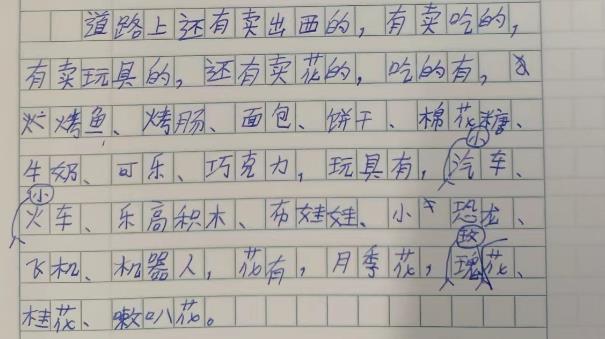 道路上还有卖出西的，有卖吃的，
有卖玩具的，还有卖花的，吃的有，
烤鱼、烤肠、面包、饼干、棉花糖、
牛奶、可乐、巧克力，玩具有，小汽车、
小火车、乐高积木、布娃娃、小恐龙、
飞机、机器人，花有，月季花，玫瑰花、
桂花、嗽叭花。